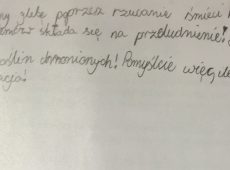 glebę poprzez rzucanie śmieci
składa się na przeludnienie!
roślin chronionych! Pomyślcie więc, ile
acja!